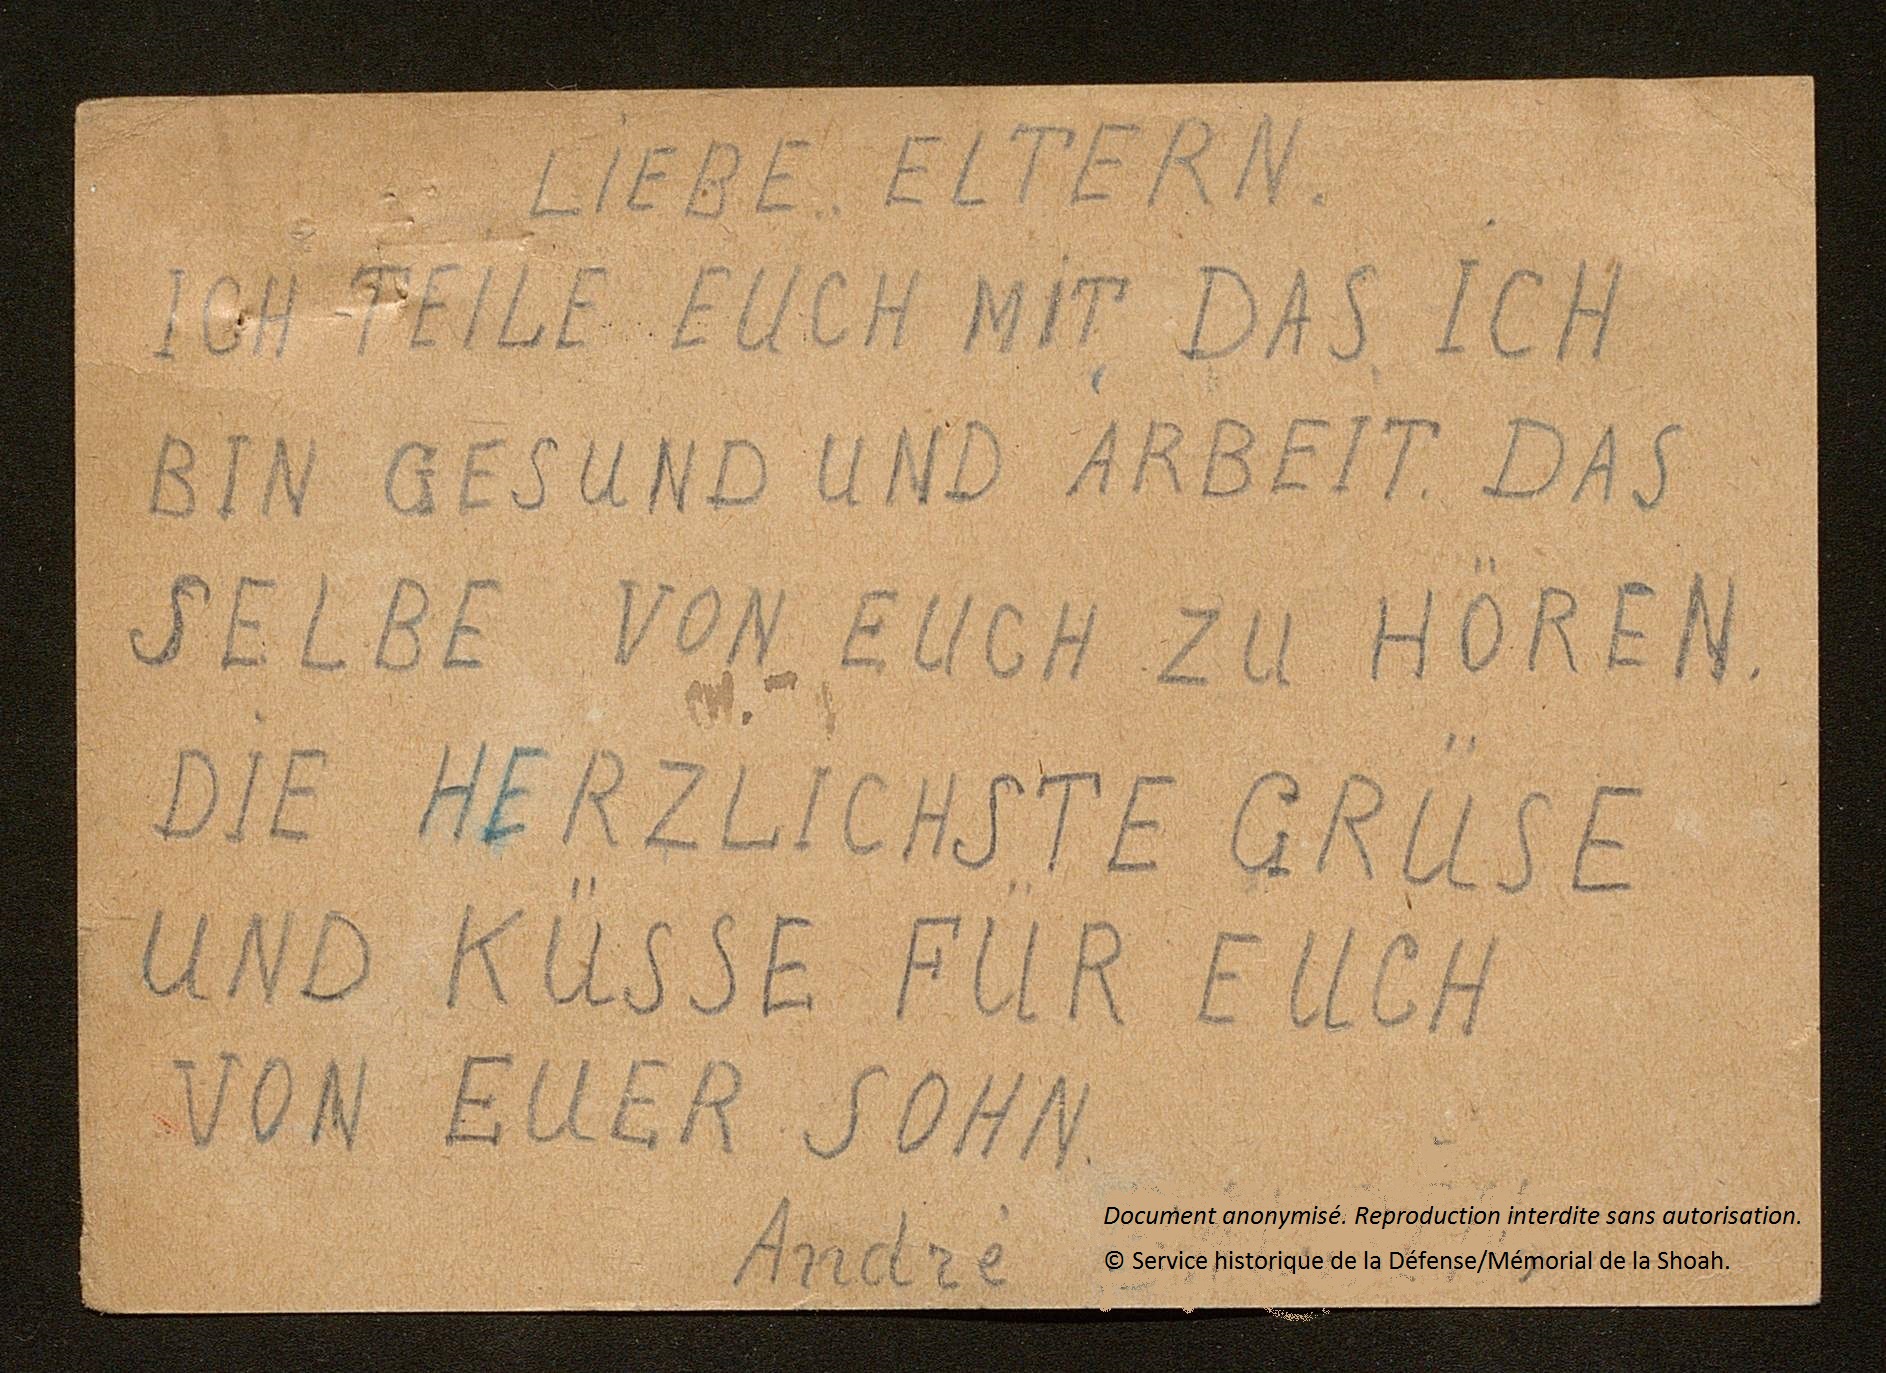 LiEBE.. ELTERN.
ICH TEILE EUCH MiT DAS ICH
BIN GESUND UND ARBEIT. DAS
SELBE VON EUCH ZU HÖREN.
DiE HERZLICHSTE GRÜSE
UND KÜSSE FÜR EUCH
VON EUER SOHN.
André
Document anonymisé. Reproduction interdite sans autorisation.
© Service historique de la Défense/Mémorial de la Shoah.